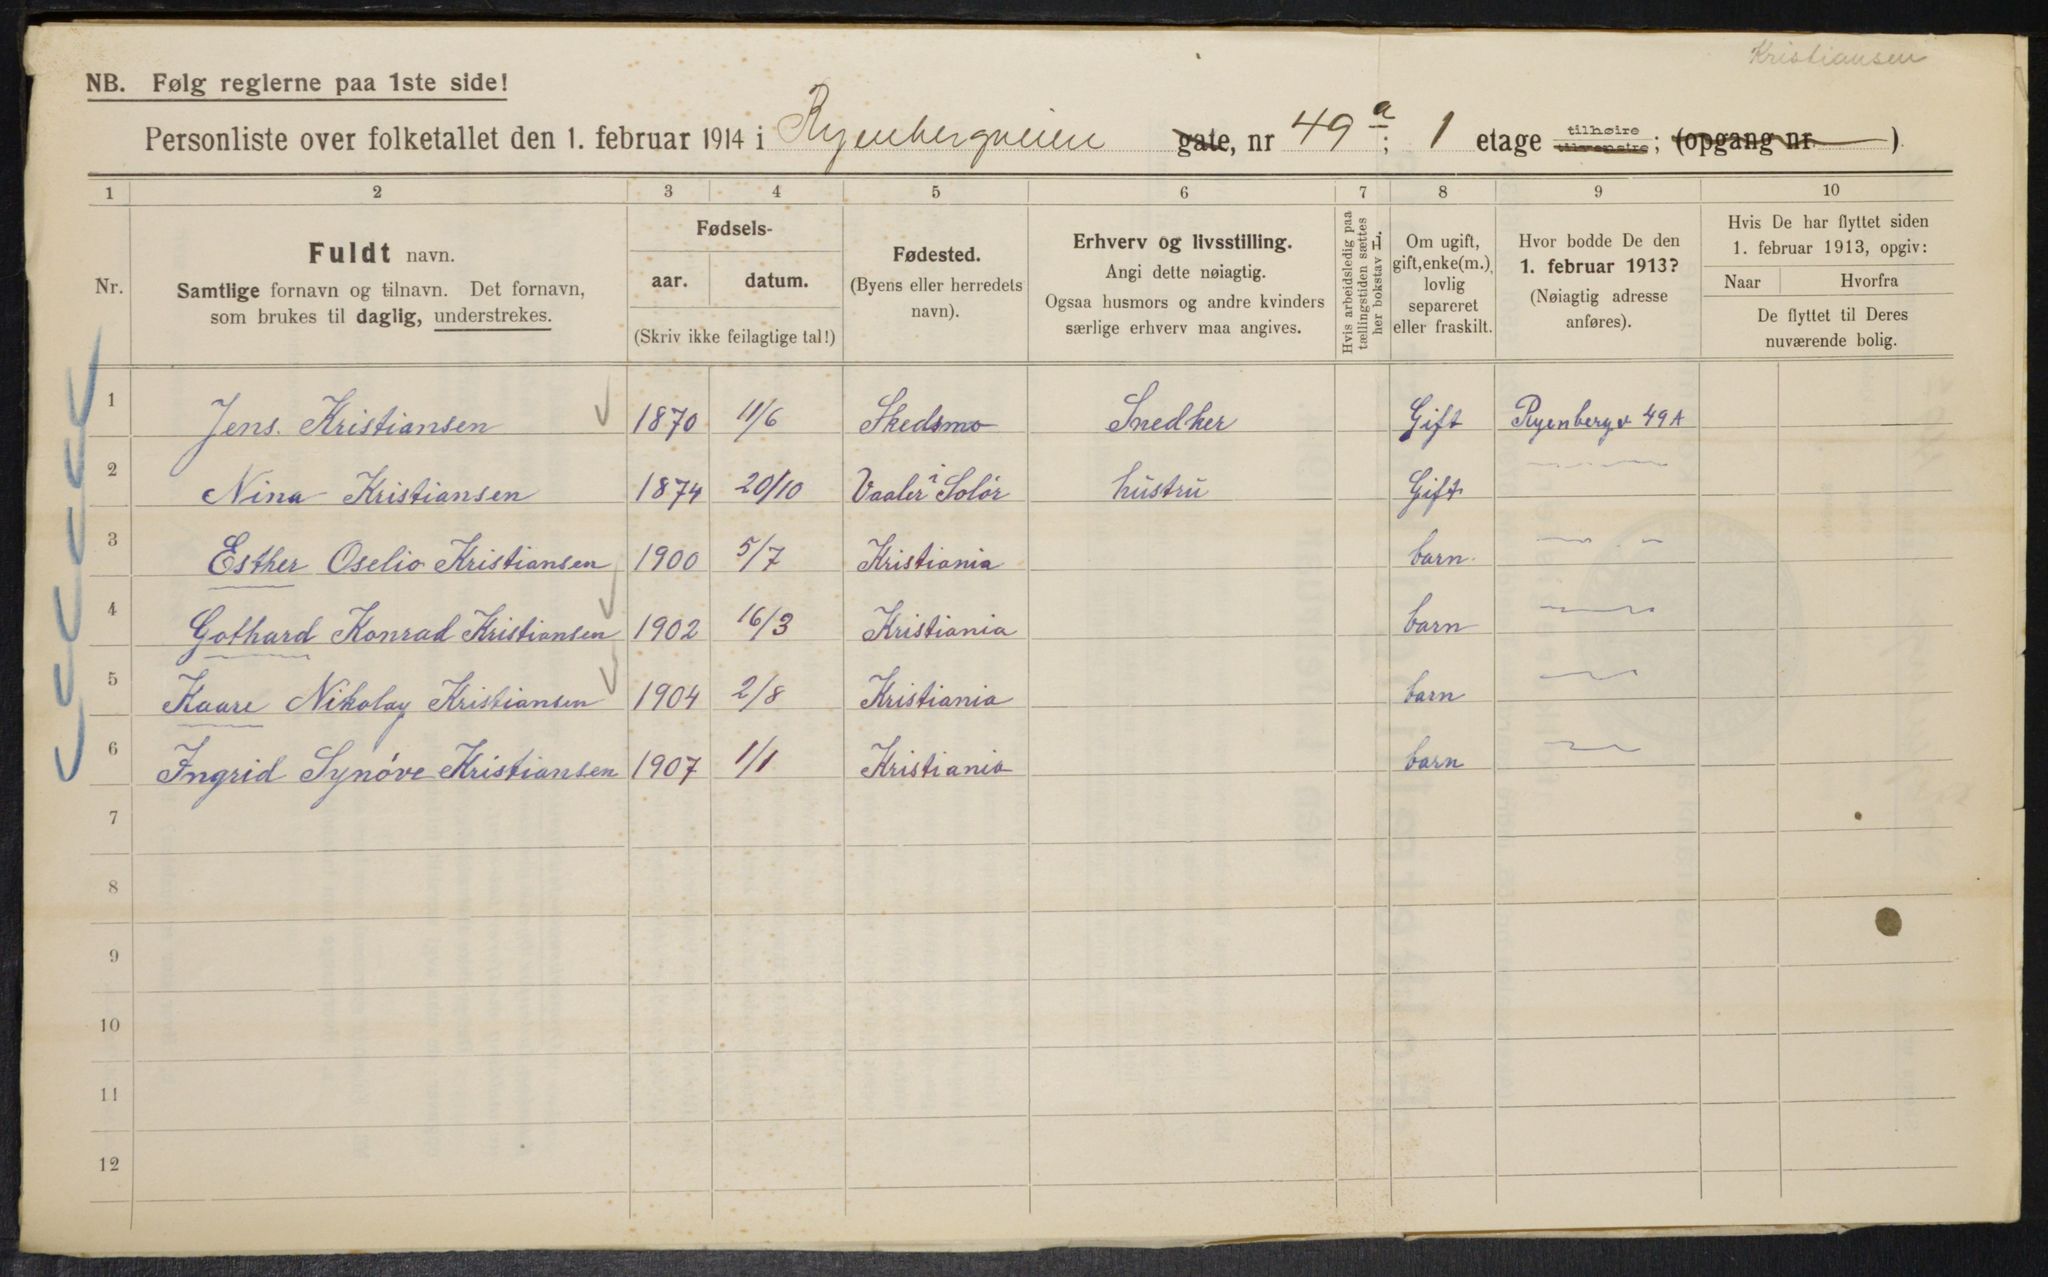 Kristiansen
NB. Følg reglerne paa 1ste side!
Personliste over folketallet den 1. februar 1914 i Ryenbergveien gate, nr 49 a; 1 etage tilhøire tilvenstre; (opgang nr. )
1 2 3 4 5 6 7 8 9 10
Nr.
Fuldt navn.
Samtlige fornavn og tilnavn. Det fornavn,
som brukes til daglig, understrekes.
Fødsels-
aar. datum.
(Skriv ikke feilagtige tal!)
Fødested.
(Byens eller herredets
navn).
Erhverv og livsstilling.
Angi dette nøiagtig.
Ogsaa husmors og andre kvinders
særlige erhverv maa angives.
Hvis arbeidsledig paa
tællingstiden sættes
her bokstav L.
Om ugift,
gift, enke(m.),
lovlig
separeret
eller fraskilt.
Hvor bodde De den
1. februar 1913?
(Nøiagtig adresse
anføres).
Hvis De har flyttet siden
1. februar 1913, opgiv:
Naar Hvorfra
De flyttet til Deres
nuværende bolig.
1 Jens. Kristiansen 1870 11/6 Skedsmo Snedker Gift Ryenbergv 49A
2 Nina Kristiansen 1874 20/10 Vaaler i Solør hustru Gift
3 Esther Oselio Kristiansen 1900 5/7 Kristiania barn.
4 Gothard Konrad Kristiansen 1902 16/3 Kristiania barn
5 Kaare Nikolay Kristiansen 1904 2/8 Kristiania barn
6 Ingrid Synøve Kristiansen 1907 1/1 Kristiania barn
7
8
9
10
11
12